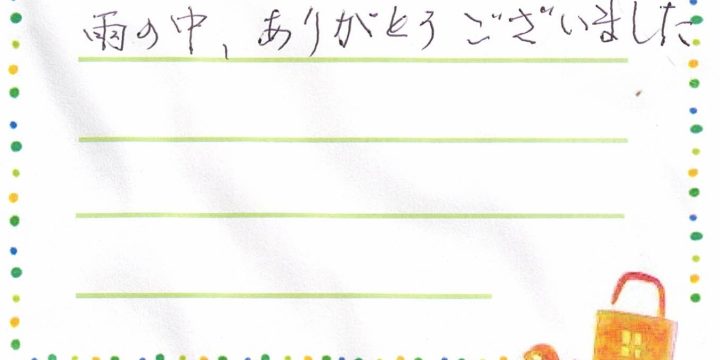 雨の中、ありがとうございました